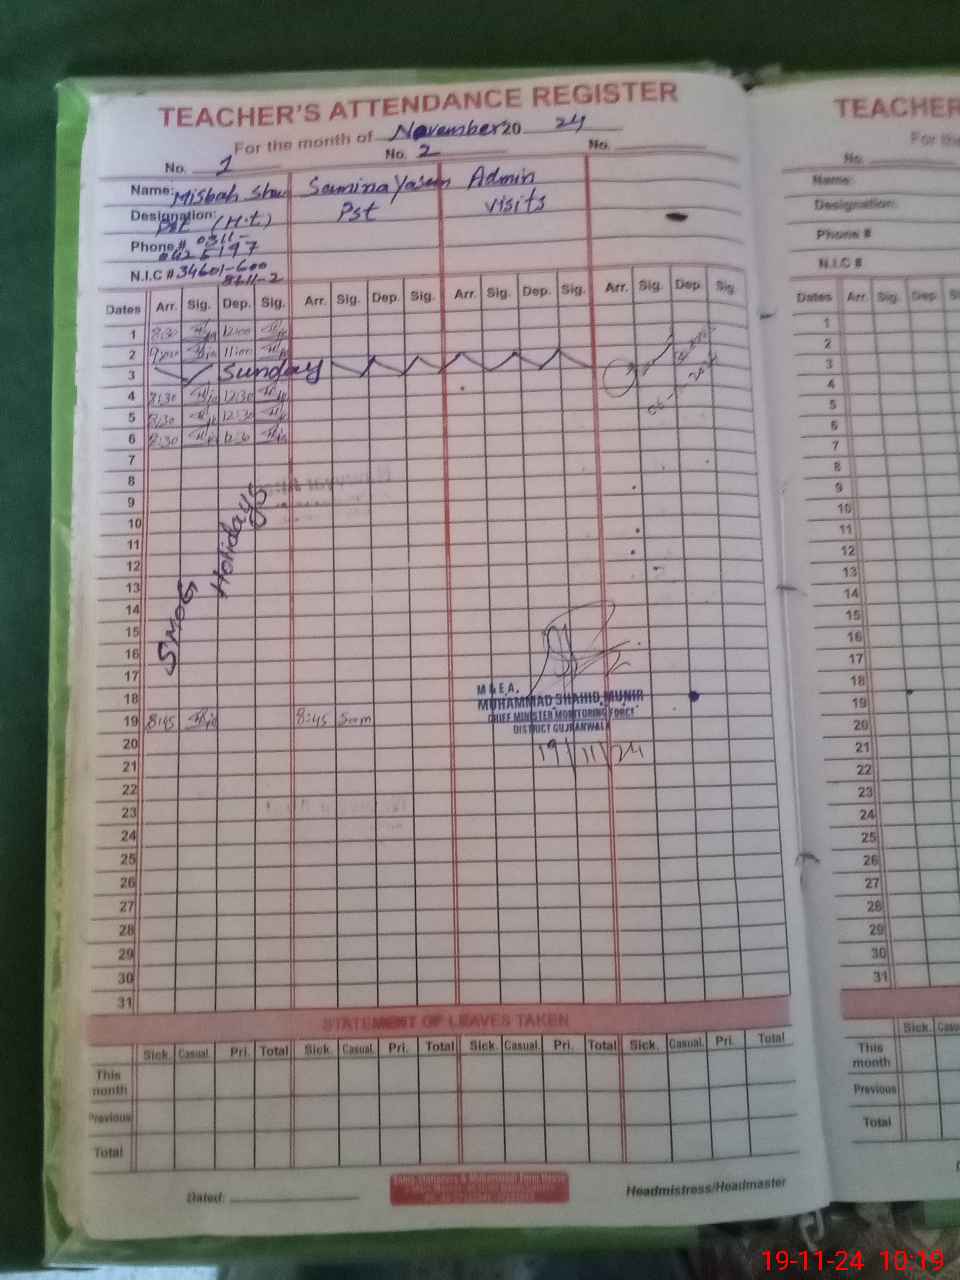 TEACHER'S ATTENDANCE REGISTER
For the month of November 20 24
No. 1 No. 2 No.
Name: Misbah Samina Yaseen Admin
Designation: Pst (H.t.) Pst visits
Phone # 0311-
N.I.C # 34601-600
8611-2
Dates Arr. Sig. Dep. Sig. Arr. Sig. Dep. Sig. Arr. Sig. Dep. Sig. Arr. Sig. Dep. Sig.
1 8:30 12:00
2 9:00 11:00
3 Sunday
4 8:30 12:30
5 8:30 12:30
6 8:30
7
8
9
10
11
12
13
14
15
16
17
18
SMOG Holidays
M & E.A.
MUHAMMAD SHAHID MUNIR
CHIEF MINISTER MONITORING FORCE
DISTRICT GUJRANWALA
19/11/24
19 8:45 8:45 Sam
20
21
22
23
24
25
26
27
28
29
30
31
STATEMENT OF LEAVES TAKEN
Sick. Casual. Pri. Total Sick. Casual. Pri. Total Sick. Casual. Pri. Total Sick. Casual. Pri. Total
This month
Previous
Total
Dated:
Headmistress/Headmaster
TEACHER
For the
No.
Name:
Designation:
Phone #
N.I.C #
Dates Arr. Sig. Dep.
1
2
3
4
5
6
7
8
9
10
11
12
13
14
15
16
17
18
19
20
21
22
23
24
25
26
27
28
29
30
31
Sick.
This month
Previous
Total
19-11-24 10:19